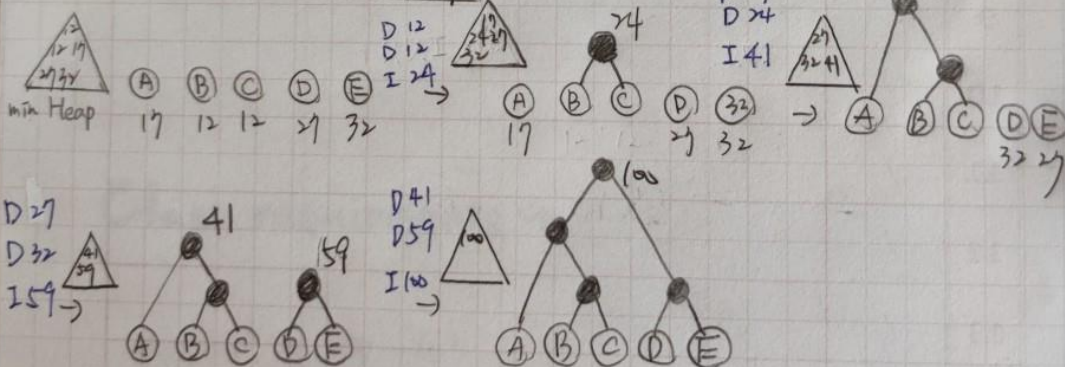 12
12 17
27 32
min Heap
A B C D E
17 12 12 27 32
D 12
D 12
I 24
→
17
24 27
32
24
A B C D 32
17 27 32
D 24
I 41
→
27
32 41
A B C D E
32 27
D 27
D 32
I 59 →
41
59
41
59
A B C D E
D 41
D 59
I 100
→
100
100
A B C D E